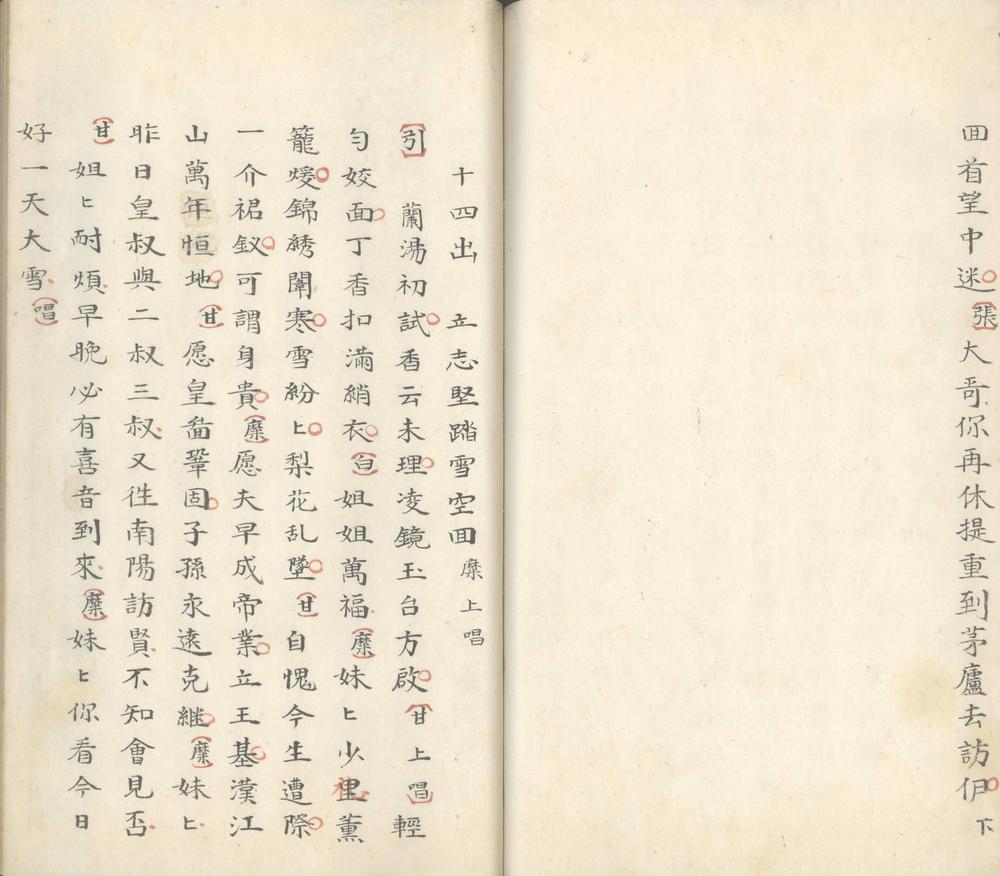 囬首望中迷張大哥你再休提重到茅廬去訪伊下
十四出 立志堅踏雪空囬 糜上唱
引 蘭湯初試香云未理凌鏡玉台方啟甘上唱輕
勻姣面丁香扣滿綃衣白姐姐萬福糜妹〻少礼薰
籠煖錦綉闈寒雪紛〻梨花乱墜甘自愧今生遭際
一介裙釵可謂身貴糜愿夫早成帝業立王基漢江
山萬年恒地甘愿皇畣鞏固子孫永遠克繼糜妹〻
昨日皇叔與二叔三叔又徃南陽訪賢不知會見否
甘姐〻耐煩早晚必有喜音到來糜妹〻你看今日
好一天大雪唱